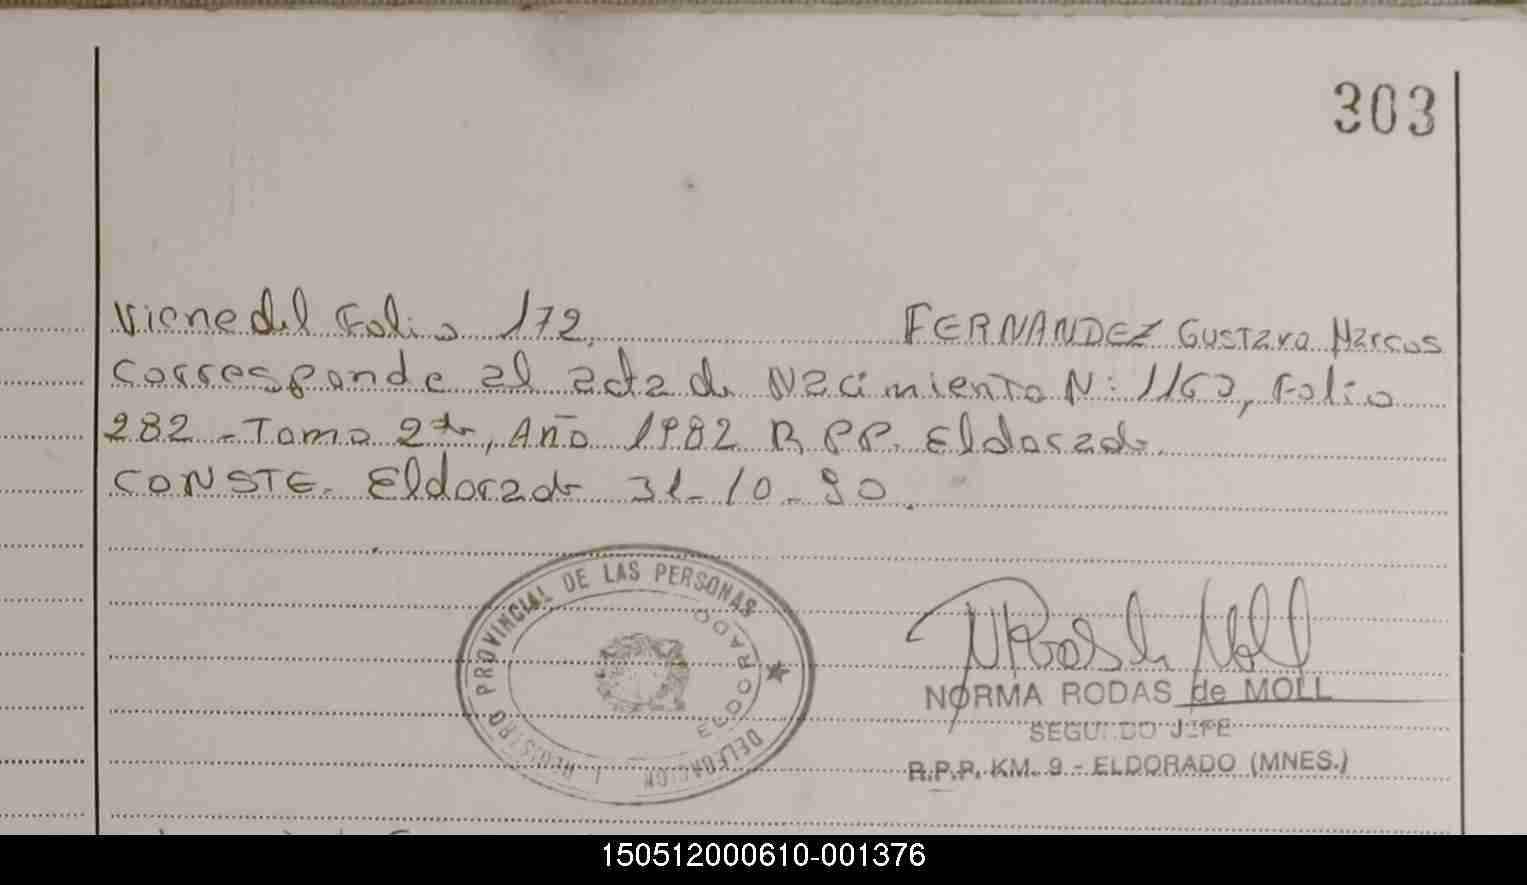 303
Viene del Folio 172. FERNANDEZ Gustavo Marcos
Corresponde al acta de Nacimiento N: 1163, Folio
282 - Tomo 2do, Año 1982 R.P.P. Eldorado.
CONSTE. Eldorado 31-10-90.
REGISTRO PROVINCIAL DE LAS PERSONAS
DELEGACION
ELDORADO
NRodas de Moll
NORMA RODAS de MOLL
SEGUNDO JEFE
R.P.P. KM. 9 - ELDORADO (MNES.)
150512000610-001376